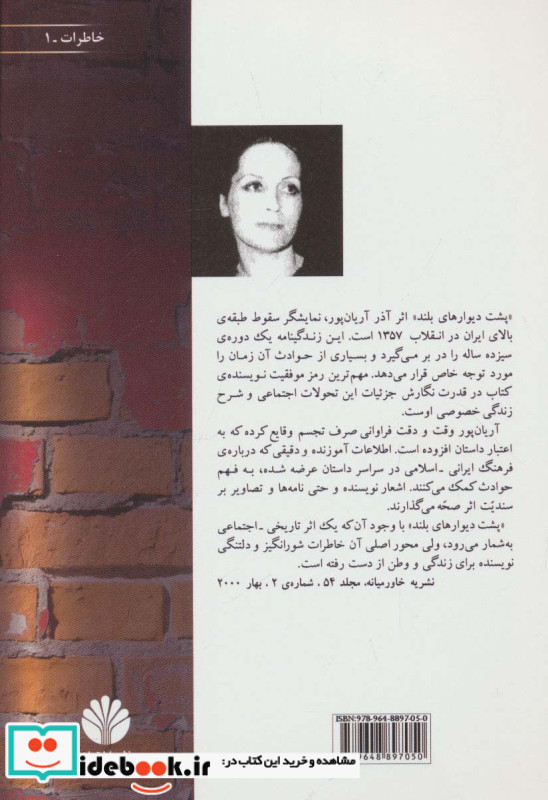 خاطرات ـ ۱
«پشت دیوارهای بلند» اثر آذر آریان‌پور، نمایشگر سقوط طبقه‌ی
بالای ایران در انقلاب ۱۳۵۷ است. این زندگینامه یک دوره‌ی
سیزده ساله را در بر می‌گیرد و بسیاری از حوادث آن زمان را
مورد توجه خاص قرار می‌دهد. مهم‌ترین رمز موفقیت نویسنده‌ی
کتاب در قدرت نگارش جزئیات این تحولات اجتماعی و شرح
زندگی خصوصی اوست.
آریان‌پور وقت و دقت فراوانی صرف تجسم وقایع کرده که به
اعتبار داستان افزوده است. اطلاعات آموزنده و دقیقی که درباره‌ی
فرهنگ ایرانی ـ اسلامی در سراسر داستان عرضه شده، به فهم
حوادث کمک می‌کنند. اشعار نویسنده و حتی نامه‌ها و تصاویر بر
سندیّت اثر صحّه می‌گذارند.
«پشت دیوارهای بلند» با وجود آن‌که یک اثر تاریخی ـ اجتماعی
به‌شمار می‌رود، ولی محور اصلی آن خاطرات شورانگیز و دلتنگی
نویسنده برای زندگی و وطن از دست رفته است.
نشریه خاورمیانه، مجلد ۵۴، شماره‌ی ۲، بهار ۲۰۰۰
ISBN: 978-964-8897-05-0
9648 897050
مشاهده و خرید این کتاب در:
idebook.ir